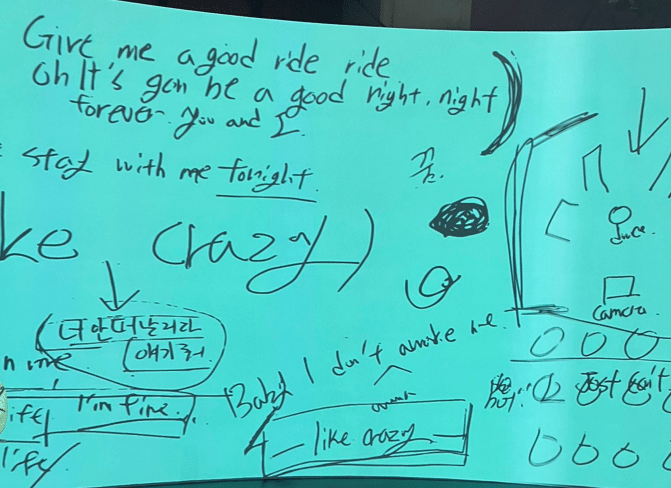 Give me a good ride ride
Oh It's gon be a good night, night
forever you and I
stay with me tonight
꿈
ke crazy)
너 안 떠날거라
얘기해줘
Juce
camera
n me
ife
I'm fine
life
Baby I don't awake me
like crazy
Just can't